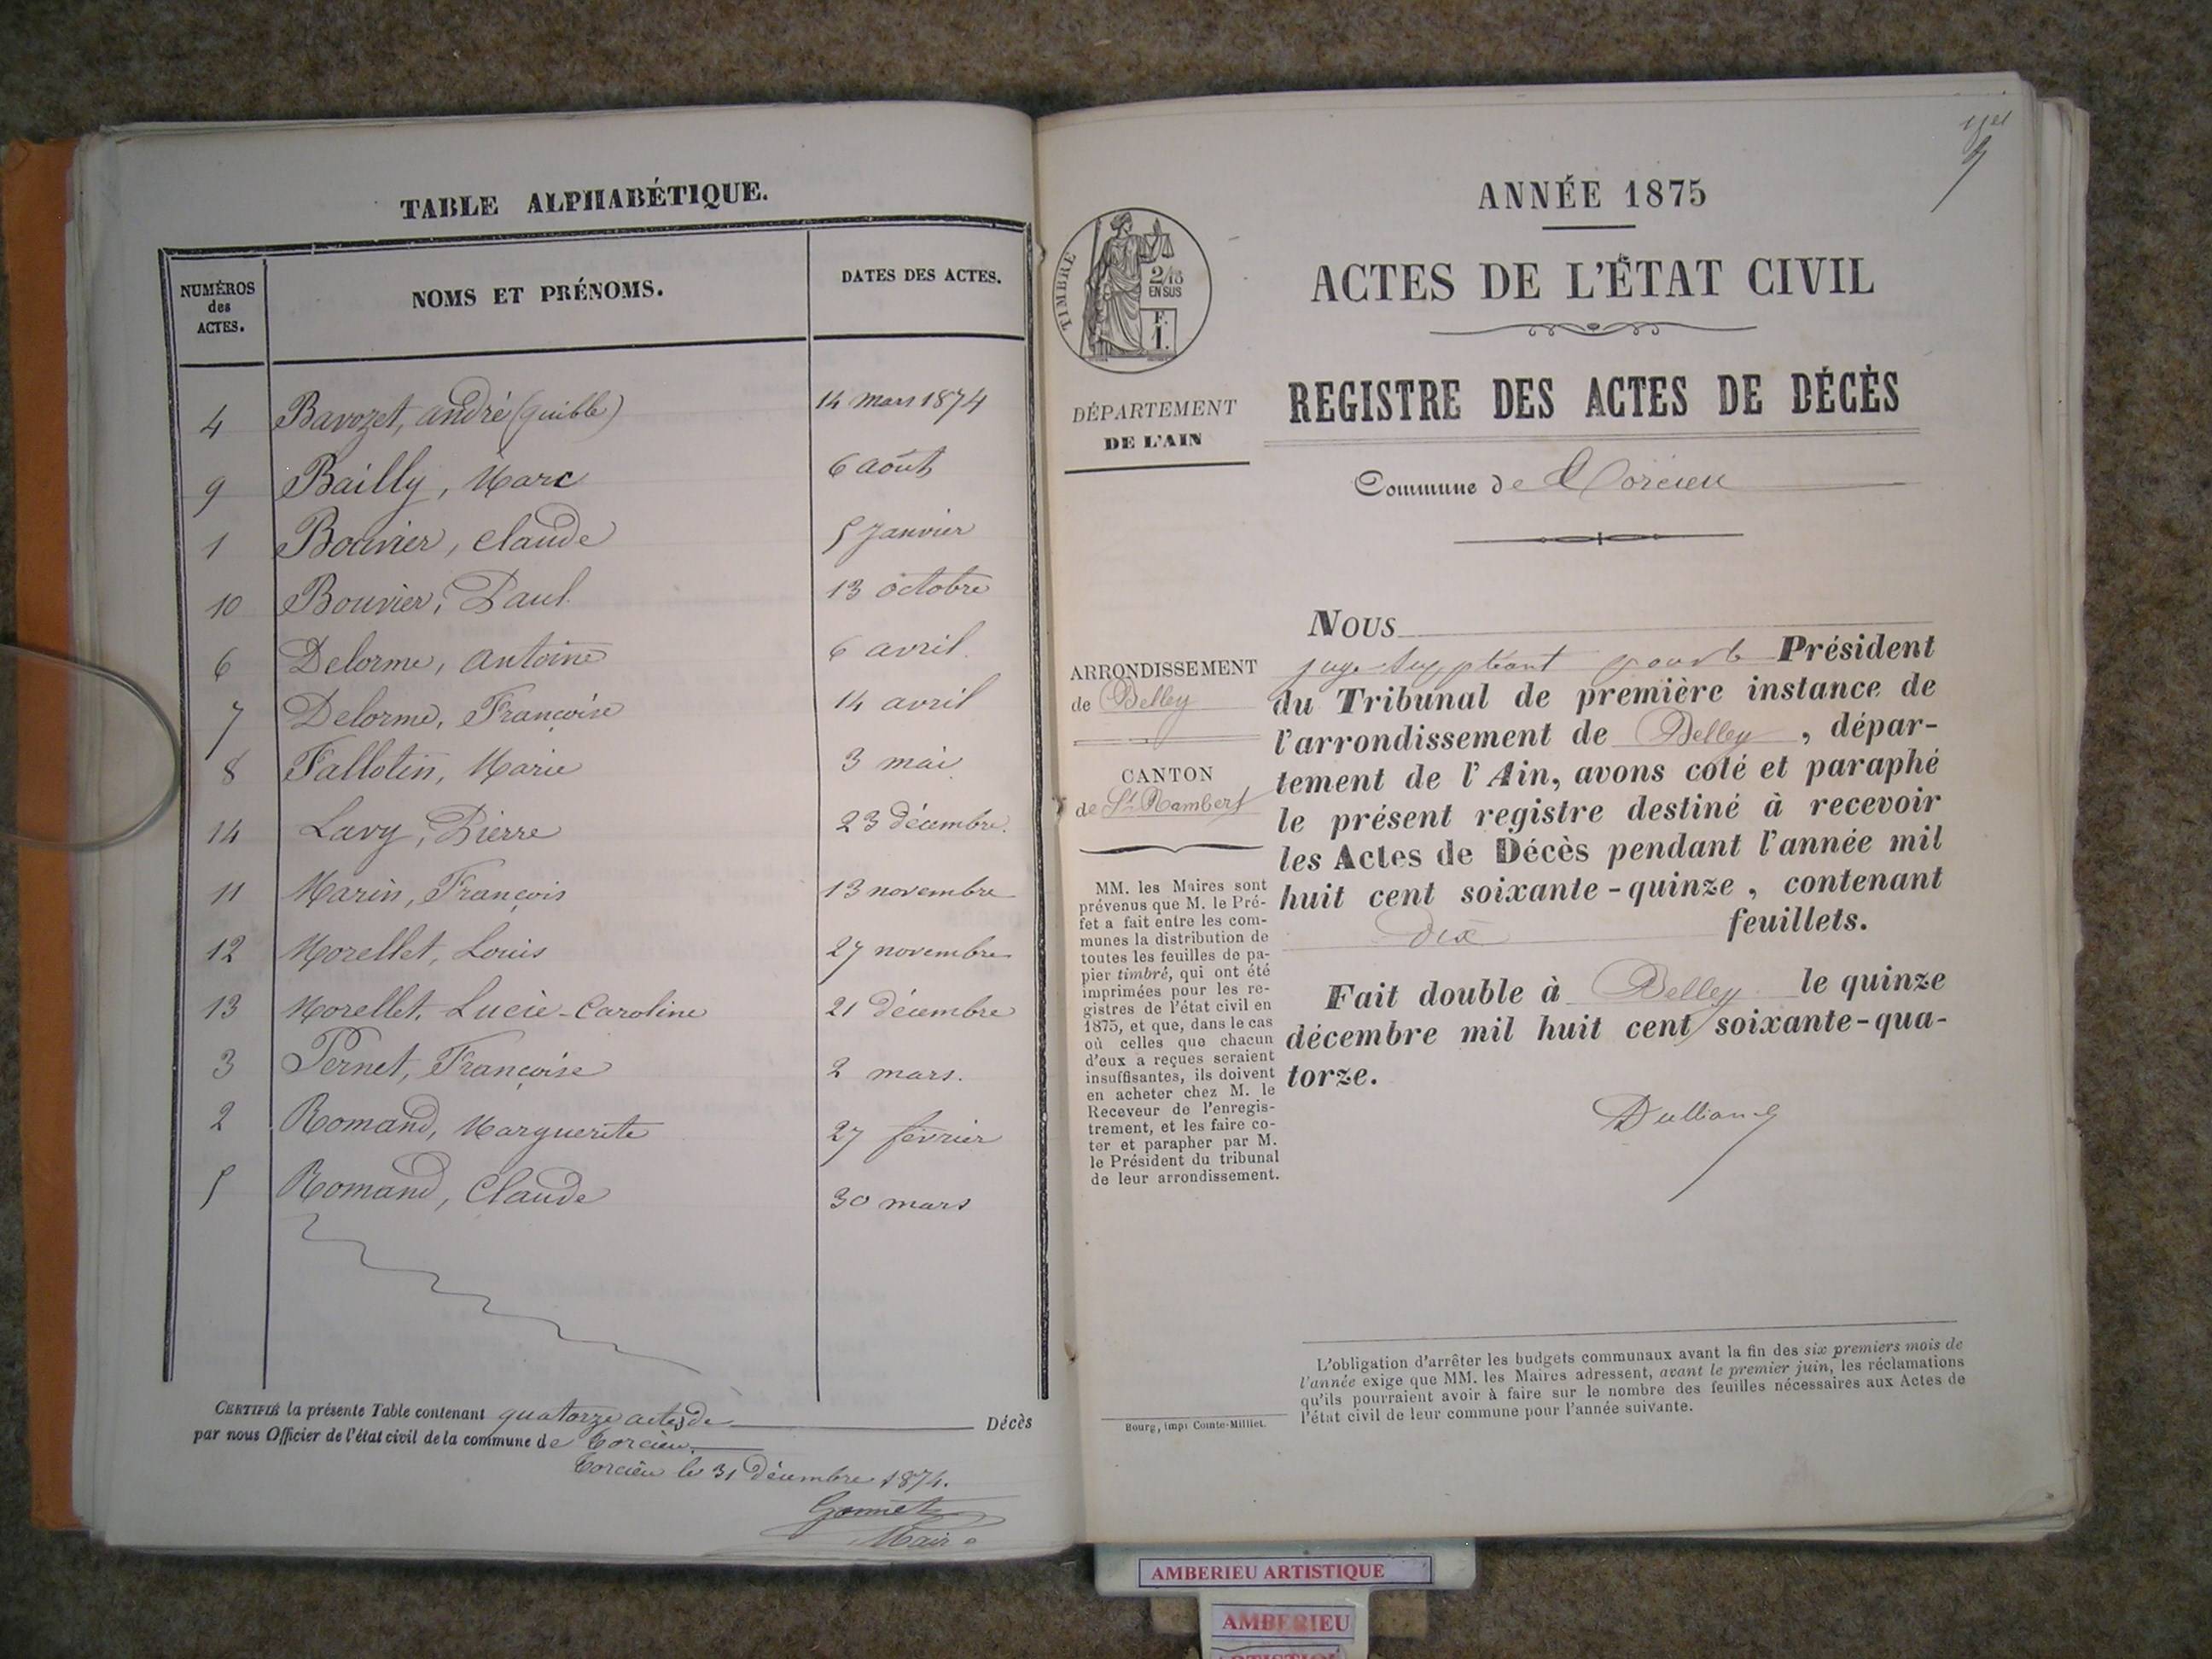 TABLE ALPHABÉTIQUE.
NUMÉROS
des
ACTES.
NOMS ET PRÉNOMS.
DATES DES ACTES.
4 Bavozet, andré (quible) 14 mars 1874
9 Bailly, Marc 6 août
1 Bouvier, claude 5 Janvier
10 Bouvier, Paul 13 octobre
6 Delorme, antoine 6 avril
7 Delorme, Françoise 14 avril
8 Fallotin, Marie 3 mai
14 Lavy, Pierre 23 décembre.
11 Marin, François 13 novembre
12 Morellet, Louis 27 novembre
13 Morellet, Lucie-Caroline 21 décembre
3 Pernet, Françoise 2 mars.
2 Romand, Marguerite 27 février
5 Romand, Claude 30 mars
CERTIFIÉ la présente Table contenant quatorze actes de Décès
par nous Officier de l'état civil de la commune de Torcieu
Torcieu le 31 décembre 1874.
Gonnet
Maire
ANNÉE 1875
TIMBRE
2/10
EN SUS
F.
1.
ACTES DE L'ÉTAT CIVIL
REGISTRE DES ACTES DE DÉCÈS
DÉPARTEMENT
DE L'AIN
Commune de Torcieu
ARRONDISSEMENT
de Belley
CANTON
de St Rambert
MM. les Maires sont
prévenus que M. le Pré-
fet a fait entre les com-
munes la distribution de
toutes les feuilles de pa-
pier timbré, qui ont été
imprimées pour les re-
gistres de l'état civil en
1875, et que, dans le cas
où celles que chacun
d'eux a reçues seraient
insuffisantes, ils doivent
en acheter chez M. le
Receveur de l'enregis-
trement, et les faire co-
ter et parapher par M.
le Président du tribunal
de leur arrondissement.
NOUS
juge suppléant pour le Président
du Tribunal de première instance de
l'arrondissement de Belley, dépar-
tement de l'Ain, avons coté et paraphé
le présent registre destiné à recevoir
les Actes de Décès pendant l'année mil
huit cent soixante-quinze, contenant
dix feuillets.
Fait double à Belley le quinze
décembre mil huit cent soixante-qua-
torze.
L'obligation d'arrêter les budgets communaux avant la fin des six premiers mois de
l'année exige que MM. les Maires adressent, avant le premier juin, les réclamations
qu'ils pourraient avoir à faire sur le nombre des feuilles nécessaires aux Actes de
l'état civil de leur commune pour l'année suivante.
Bourg, imp. Comte-Milliet.
AMBERIEU ARTISTIQUE
AMBERIEU
ARTISTIQUE